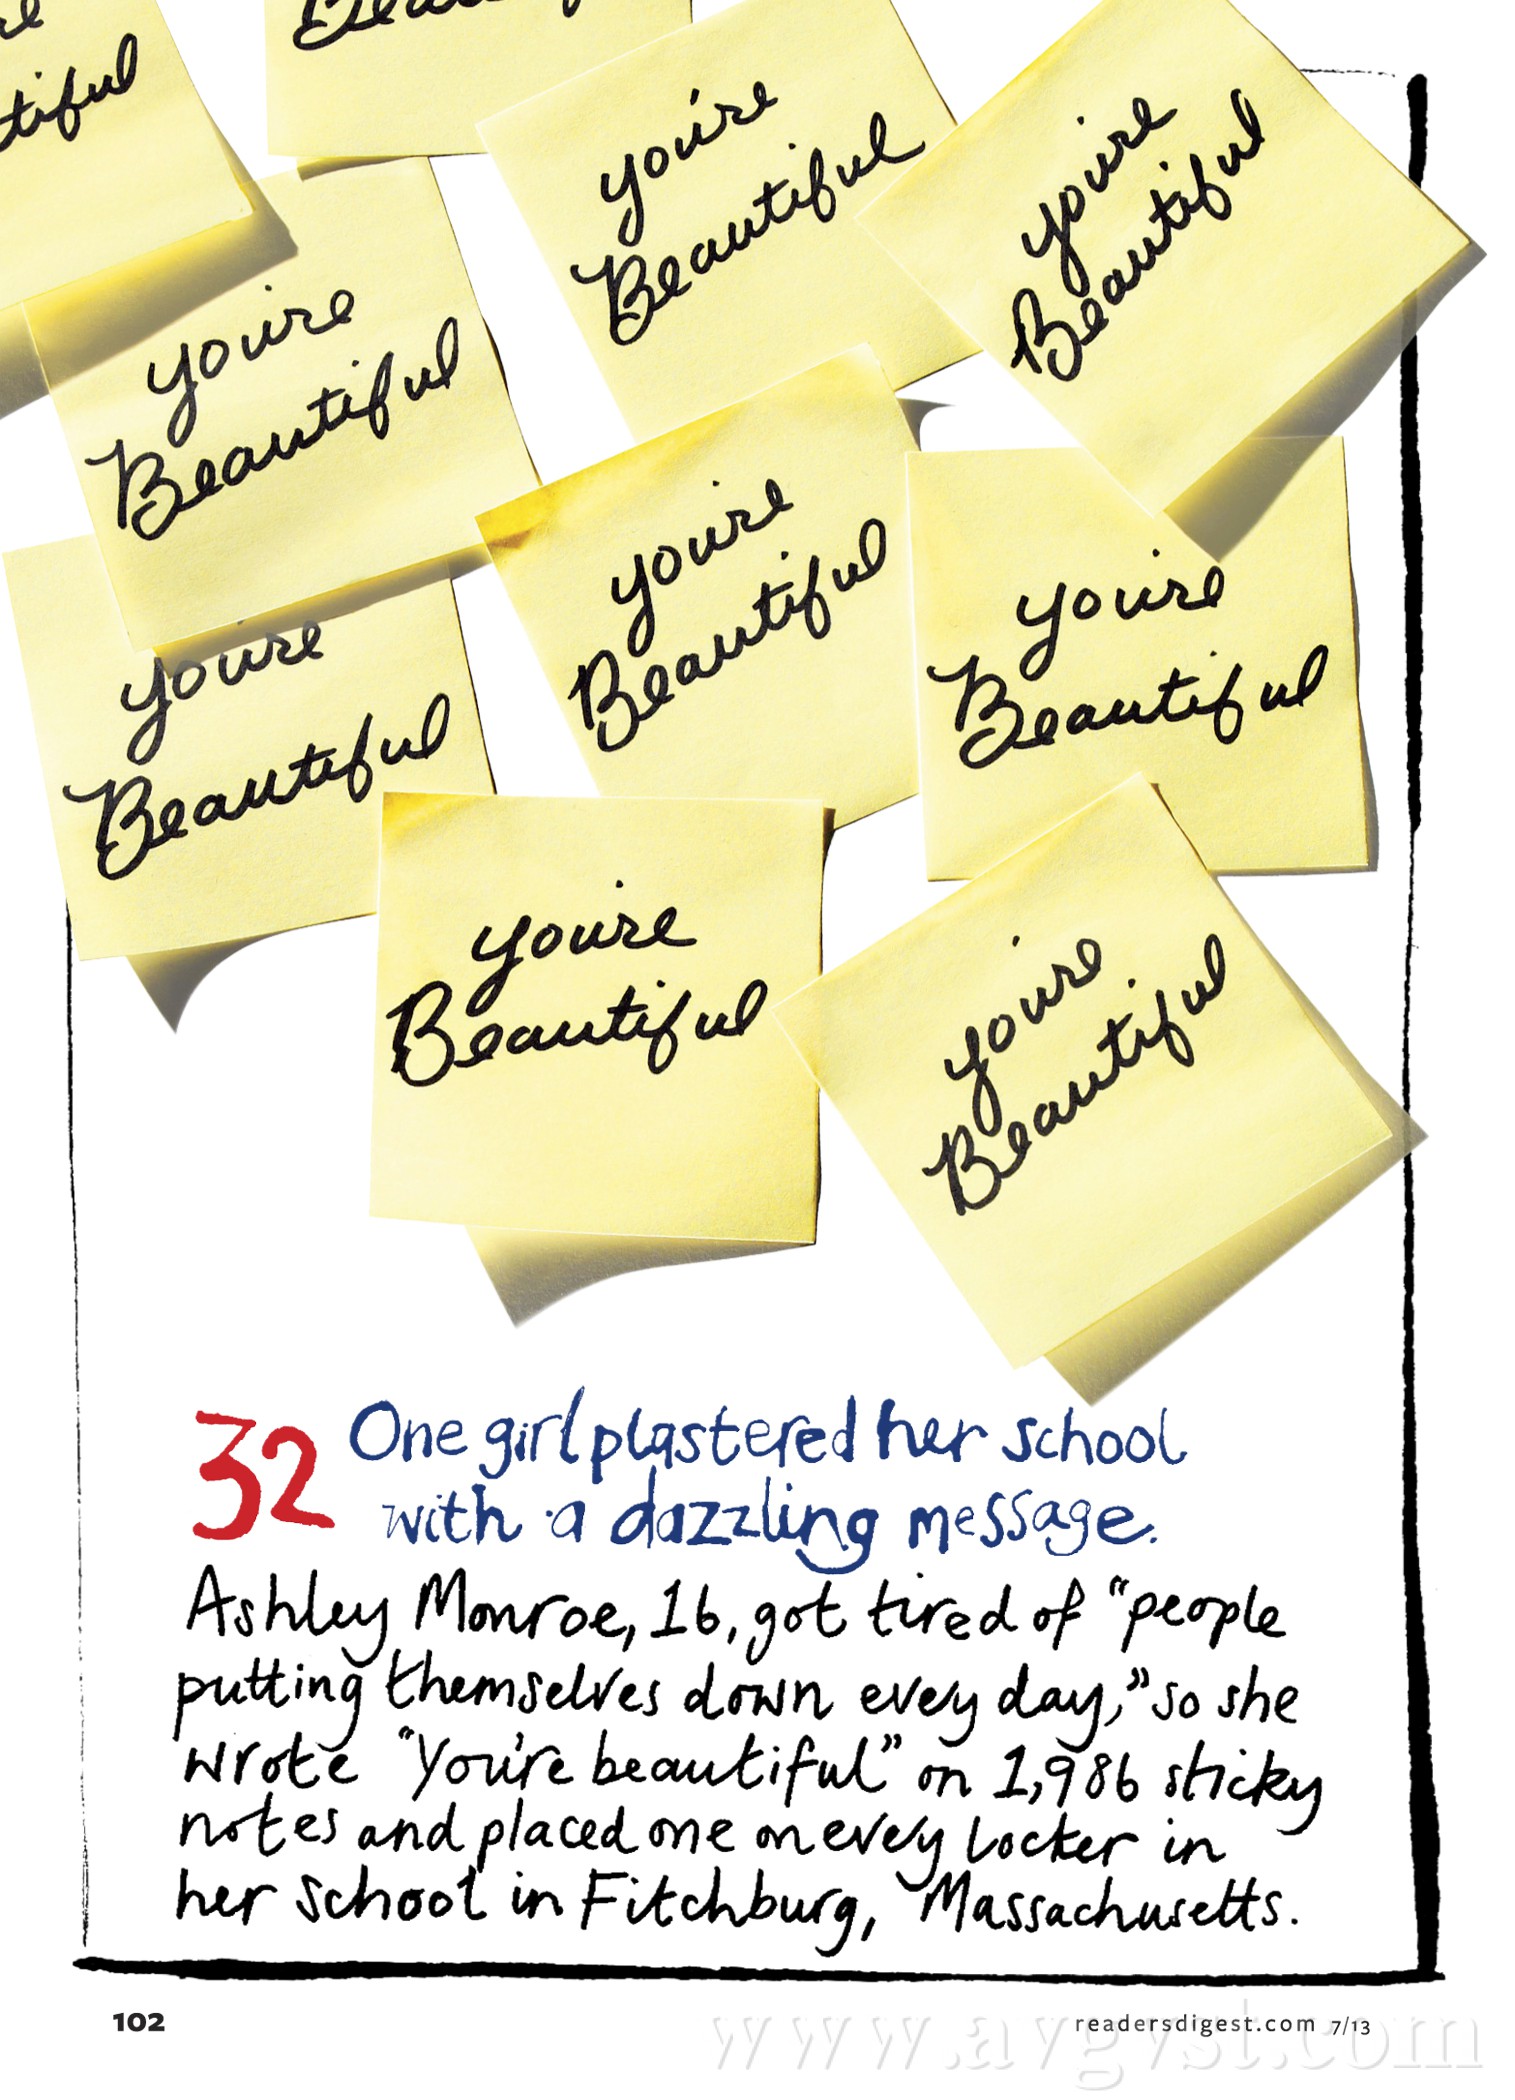 tiful
Beautiful
you're
Beautiful
you're
Beautiful
you're
Beautiful
you're
Beautiful
you're
Beautiful
you're
Beautiful
you're
Beautiful
you're
Beautiful
32 One girl plastered her school
with a dazzling message.
Ashley Monroe, 16, got tired of “people
putting themselves down every day,” so she
wrote “You’re beautiful” on 1,986 sticky
notes and placed one on every locker in
her school in Fitchburg, Massachusetts.
102
readersdigest.com 7/13
www.avgvst.com